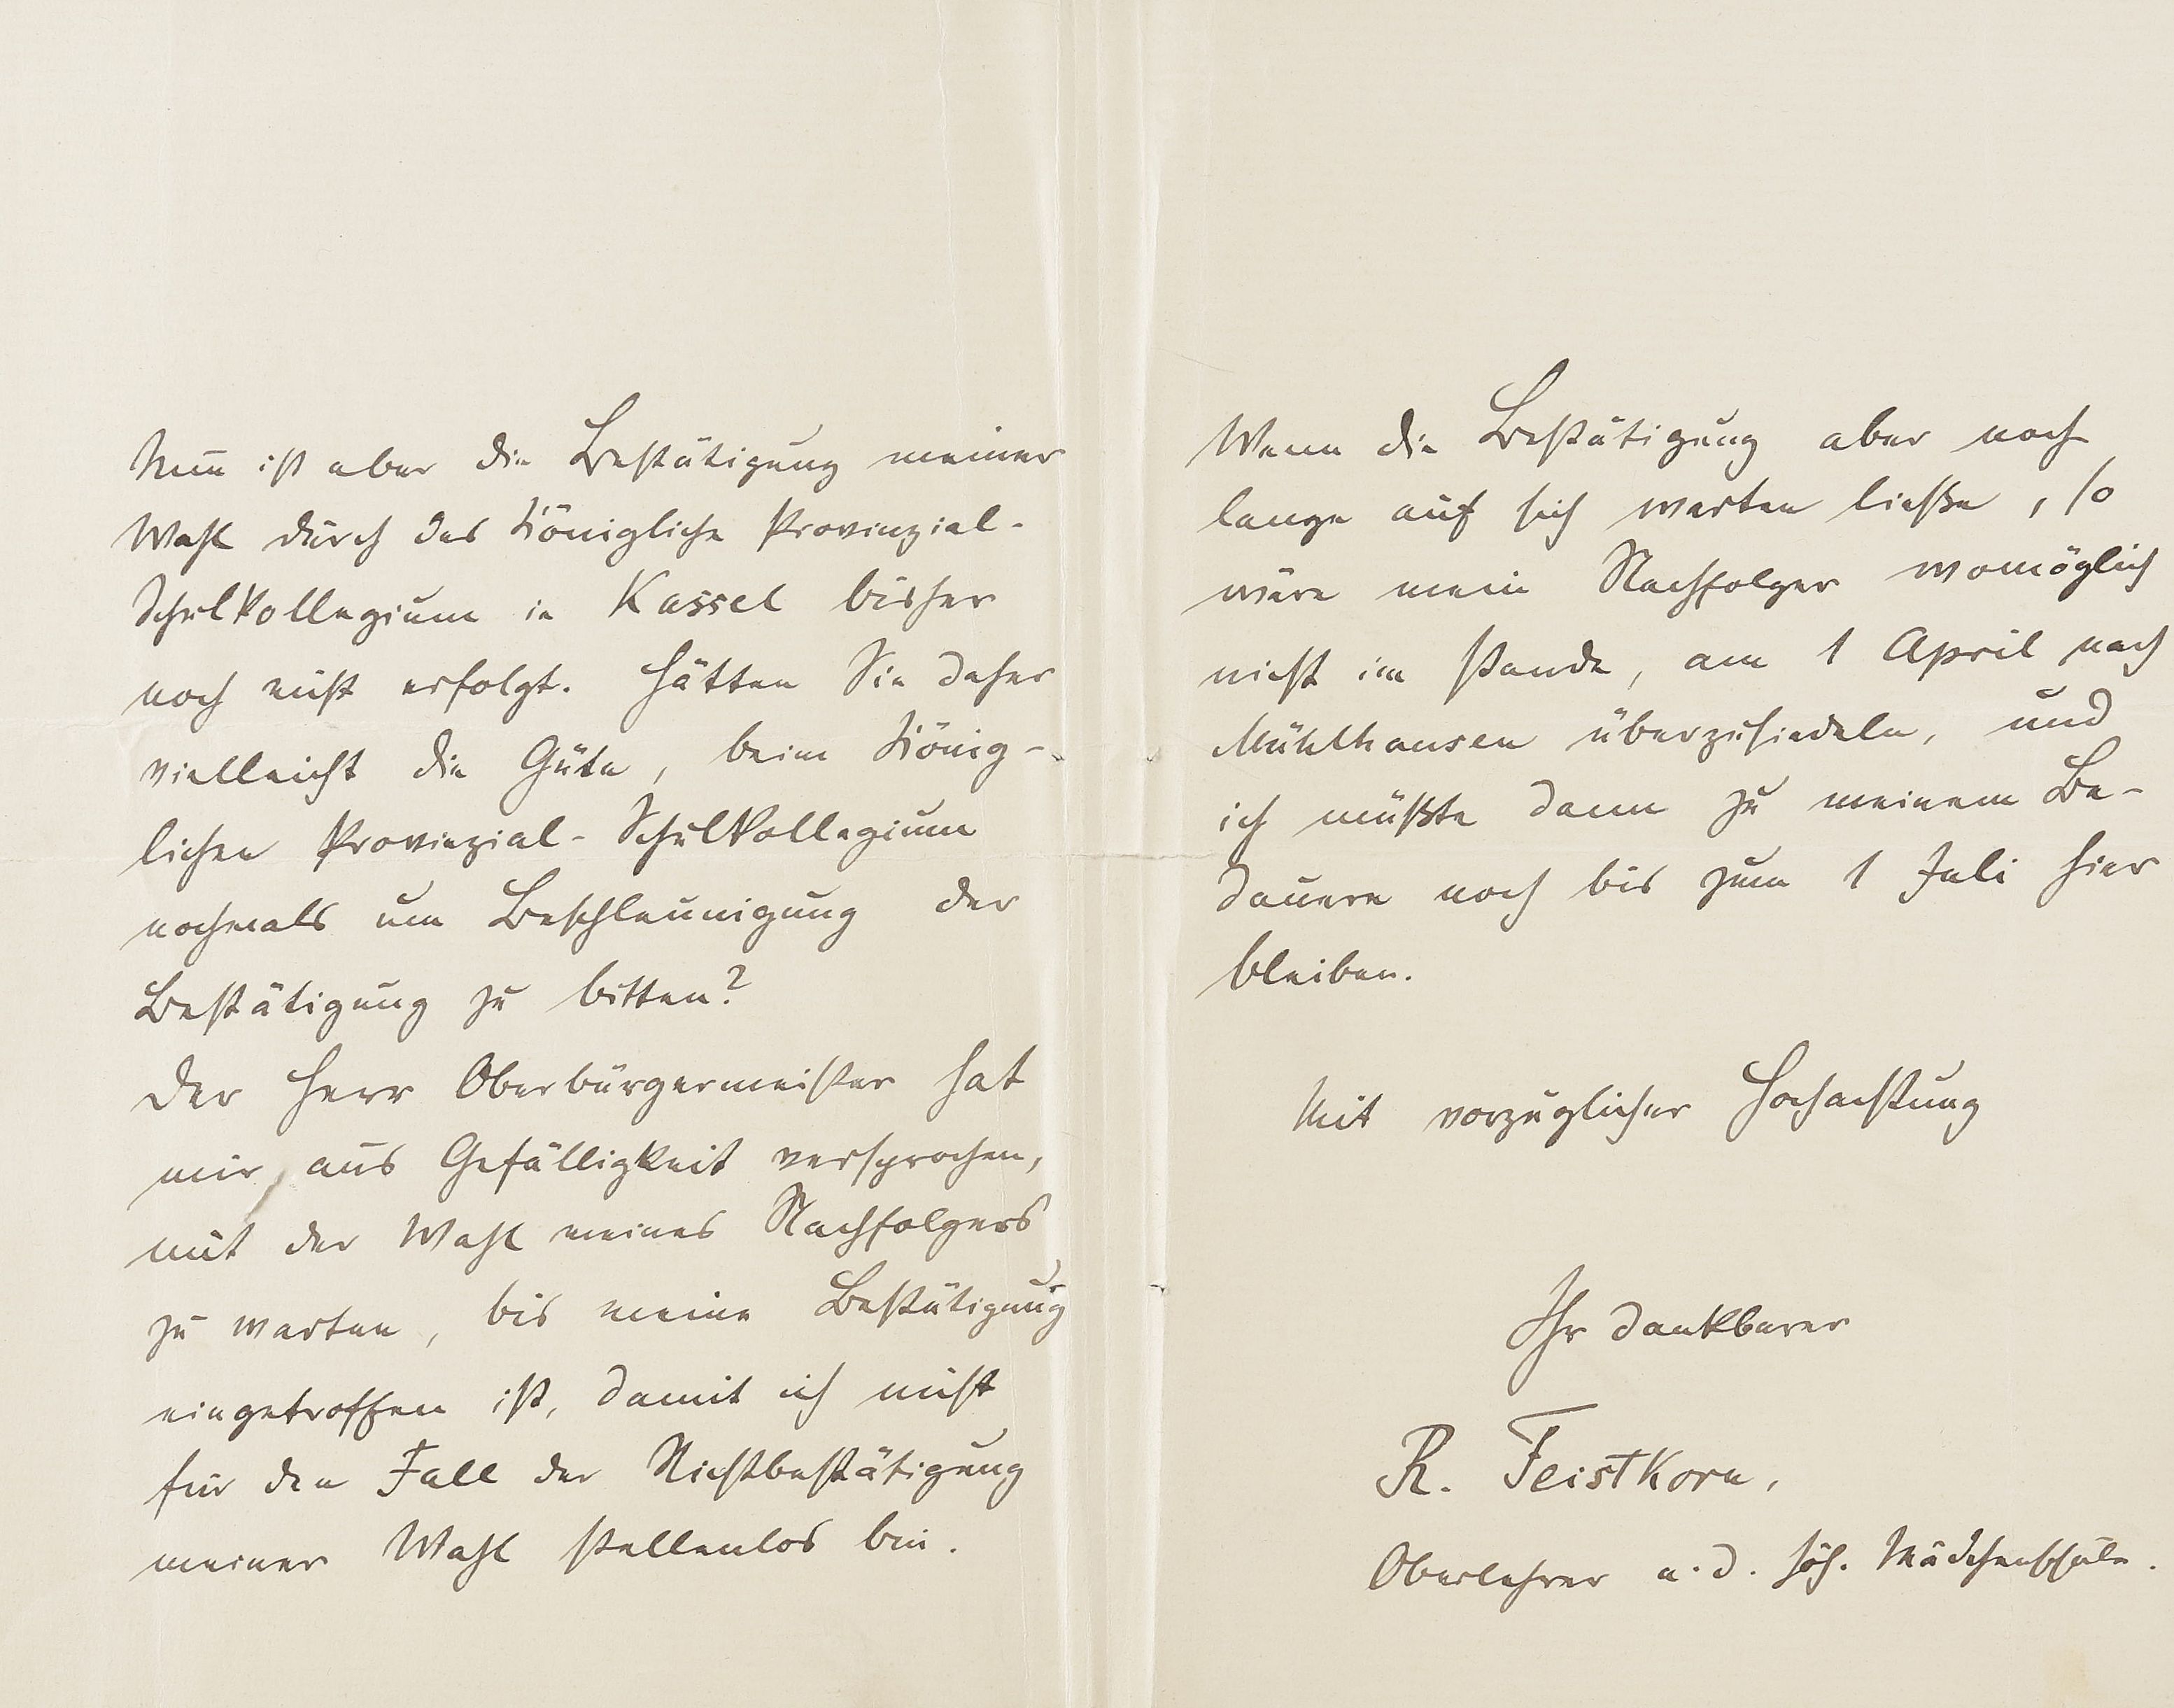 Nun ist aber die Bestätigung meiner
Wahl durch das Königliche Provinzial-
Schulkollegium in Kassel bisher
noch nicht erfolgt. Hätten Sie daher
vielleicht die Güte, beim König-
lichen Provinzial-Schulkollegium
nochmals um Beschleunigung der
Bestätigung zu bitten?
Der Herr Oberbürgermeister hat
mir aus Gefälligkeit versprochen,
mit der Wahl meines Nachfolgers
zu warten, bis meine Bestätigung
eingetroffen ist, damit ich nicht
für den Fall der Nichtbestätigung
meiner Wahl stellenlos bin.
Wenn die Bestätigung aber noch
lange auf sich warten ließe, so
wäre mein Nachfolger womöglich
nicht im stande, am 1 April nach
Mühlhausen überzusiedeln, und
ich müßte dann zu meinem Be-
dauern noch bis zum 1 Juli hier
bleiben.
Mit vorzüglicher Hochachtung
Ihr dankbarer
R. Feistkorn,
Oberlehrer a. d. höh. Mädchenschule.